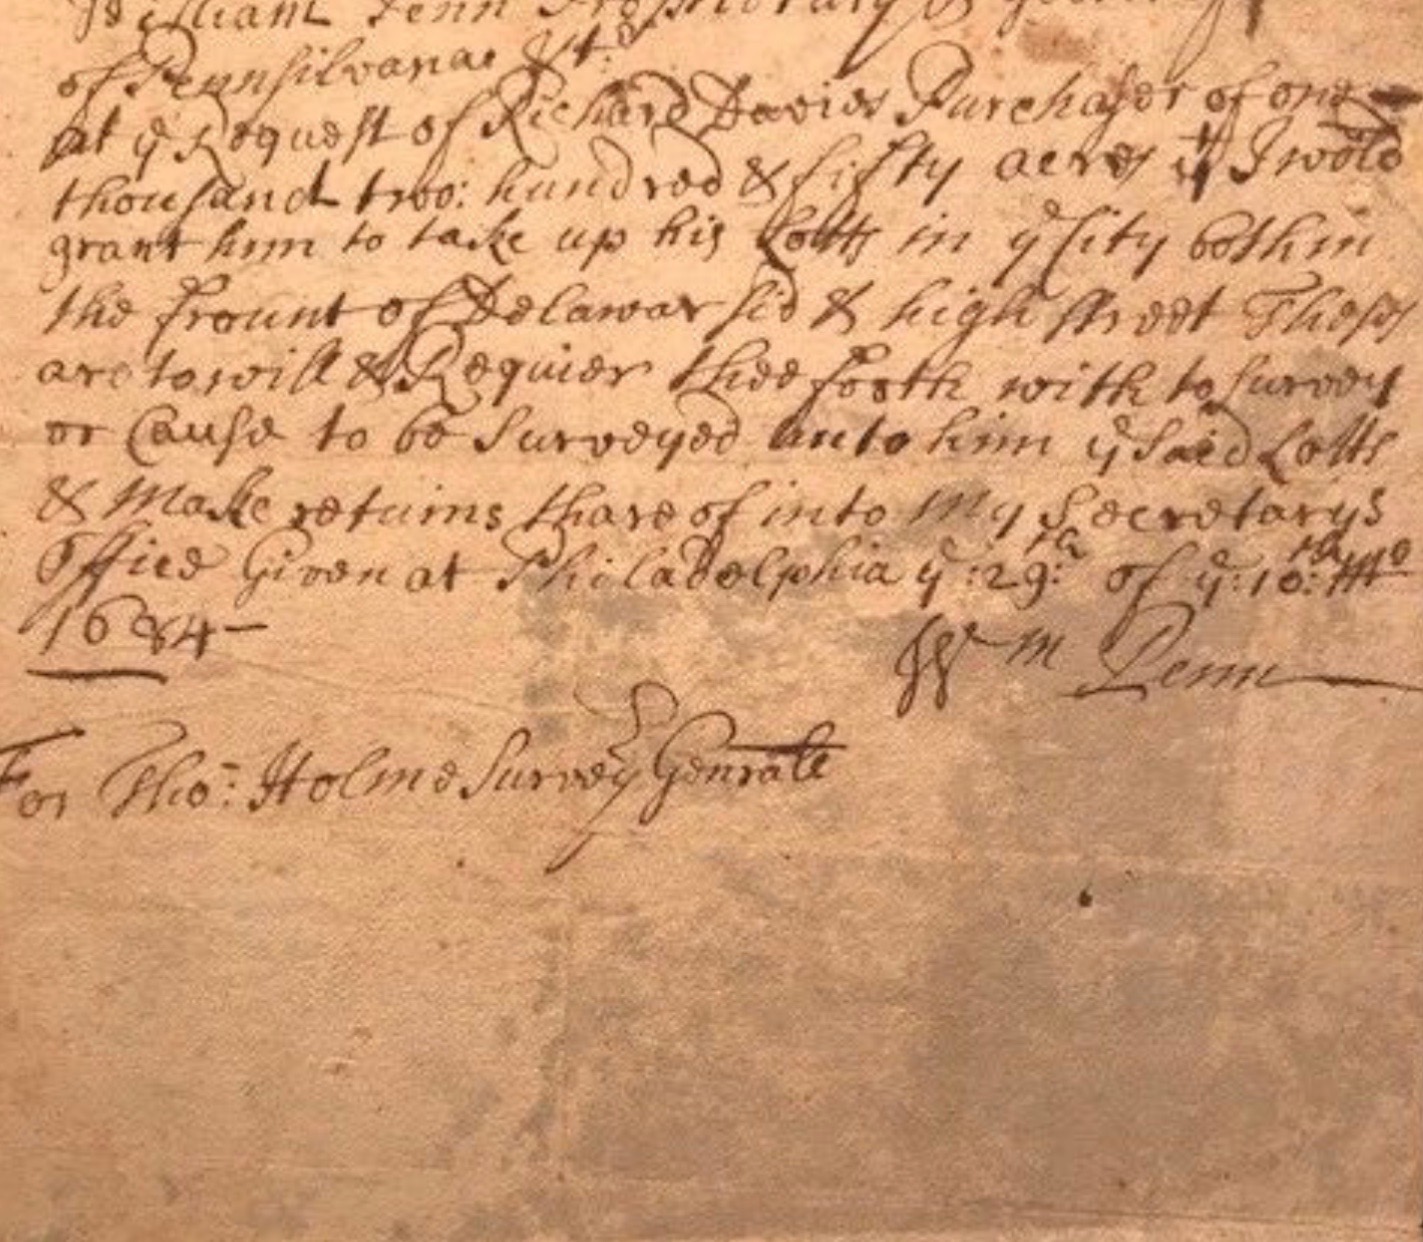 William Penn Proprietary &
of Pennsilvanae
at ye Request of Richard Davies Purchaser of one
thousand two: hundred & fifty acres yt I wold
grant him to take up his Lotts in ye City both in
the frount of Delawar sid & high street Theses
are to will & Requier thee forth with to survey
or Cause to be Surveyed unto him ye Said Lotts
& Make returns thareof into My Secretarys
Office Given at Philadelphia ye :29:th of ye :10:th Mo
1684 -
Wm Penn
For Tho: Holme Surveyr Genrale